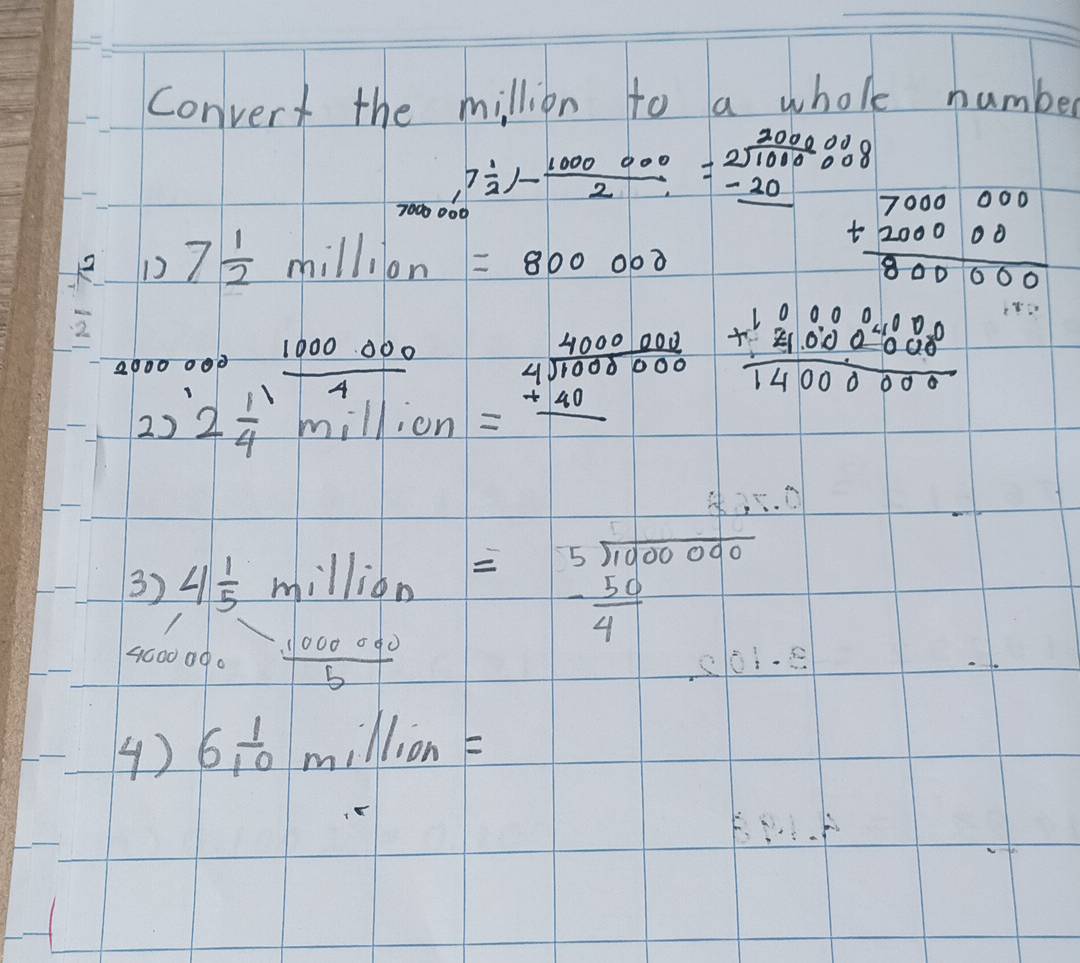 Convert the million to a whole number
7 1/2 ) - 1000 000 / 2 = 2000 000
2 ) 1000 000
- 20
7000 000
7000 000
+ 2000 00
800 000
1) 7 1/2 million = 800 000
2000 000
1000 000 / 4
4000 000
4 ) 1000 000
+ 40
14 000 000
2) 2 1/4 million =
3) 4 1/5 million = 5 ) 1000 000
- 50
4
4000 000
1000 000 / 5
4) 6 1/10 million =